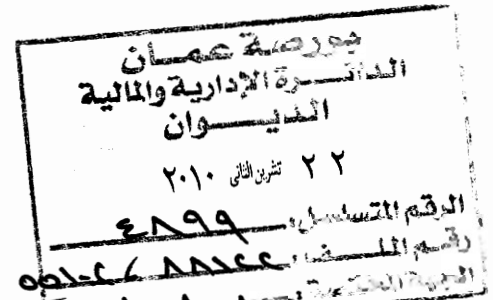 بورصة عمان
الدائرة الإدارية والمالية
الديوان
٢٢ تشرين الثاني ٢٠١٠
الرقم المتسلسل ٤٨٩٩
رقم الملف
الجهة المختصة